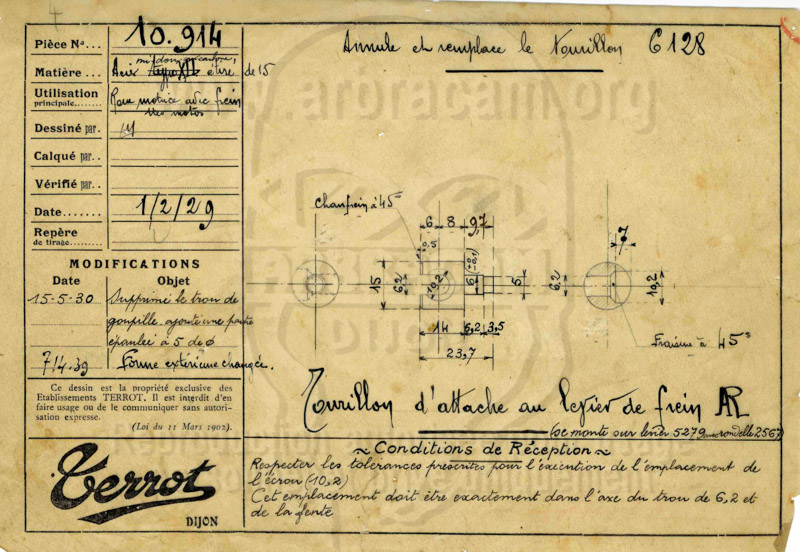 Pièce No... 10.914
Matière... Acix mi-dour étiré de 15
Utilisation
principale... Roue motrice avec frein
des motos
Dessiné par.
Calqué par..
Vérifié par..
Date....... 1/2/29
Repère
de tirage.....
MODIFICATIONS
Date Objet
15-5-30 Supprimé le trou de
goupille, ajouté une partie
épaulée à 5 de ø
7/4.39 Forme extérieure changée.
Ce dessin est la propriété exclusive des
Etablissements TERROT. Il est interdit d'en
faire usage ou de le communiquer sans autori-
sation expresse.
(Loi du 11 Mars 1902).
Terrot
DIJON
Annule et remplace le Tourillon 6128
www.arbracam.org
Chanfrein à 45°
6 8 9,7
+0,5
15
6,2
10,2
6
5
14 6,2 3,5
23,7
7
6,2
10,2
Fraisure à 45°
Tourillon d'attache au levier de frein AR
(se monte sur levier 5279 avec rondelle 2567)
~ Conditions de Réception ~
Respecter les tolérances présentes pour l'exécution de l'emplacement de
l'écrou (10,2)
Cet emplacement doit être exactement dans l'axe du trou de 6,2 et
de la fente